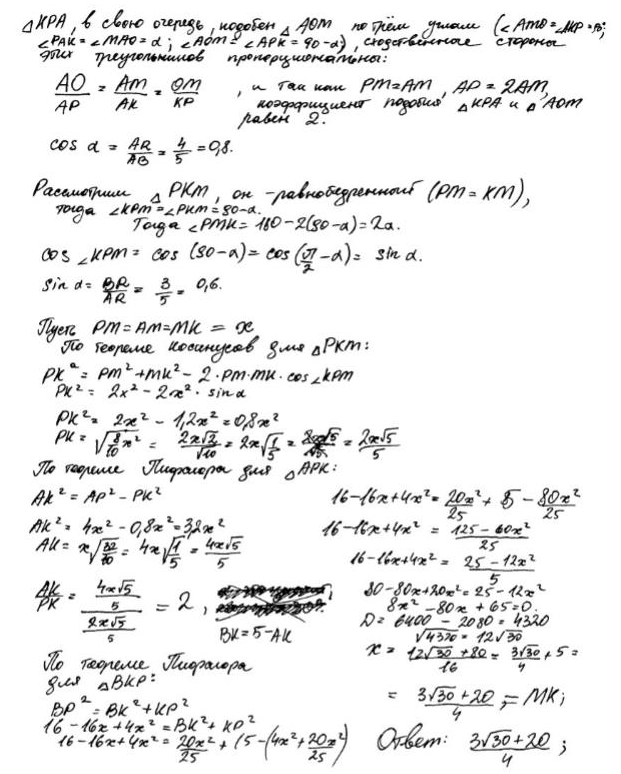 △KPA, в свою очередь, подобен △AOM по трём углам (∠AMO=∠AKP=90°;
∠PAK=∠MAO=α; ∠AOM=∠APK=90-α), сходственные стороны
этих треугольников пропорциональны:
AO/AP = AM/AK = OM/KP, и так как PM=AM, AP=2AM,
коэффициент подобия △KPA и △AOM
равен 2.
cos α = AR/AB = 4/5 = 0,8.
Рассмотрим △PKM, он - равнобедренный (PM=KM),
тогда ∠KPM=∠PKM=90-α.
Тогда ∠PMK=180-2(90-α)=2α.
cos ∠KPM = cos (90-α) = cos(π/2-α) = sin α.
sin α = BR/AR = 3/5 = 0,6.
Пусть PM=AM=MK = x
По теореме косинусов для △PKM:
PK² = PM²+MK²-2·PM·MK·cos∠KPM
PK² = 2x²-2x²·sinα
PK² = 2x² - 1,2x² = 0,8x²
PK = √(8/10 x²) = 2x√2/√10 = 2x√(1/5) = 2x√5/5
По теореме Пифагора для △APK:
AK² = AP²-PK²
AK² = 4x² - 0,8x² = 3,2x²
AK = x√(32/10) = 4x√(1/5) = 4x√5/5
AK/PK = (4x√5/5)/(2x√5/5) = 2,
BK=5-AK
По теореме Пифагора
для △BKP:
BP² = BK²+KP²
16-16x+4x² = BK²+KP²
16-16x+4x² = 20x²/25 + (5-(4x²+20x²/25)
16-16x+4x² = 20x²/25 + 5 - 80x²/25
16-16x+4x² = (125-60x²)/25
16-16x+4x² = (25-12x²)/5
80-80x+20x² = 25-12x²
8x²-80x+65=0.
D = 6400 - 2080 = 4320
√4320 = 12√30
x = (12√30+80)/16 = 3√30/4 + 5 =
= (3√30+20)/4 = MK;
Ответ: (3√30+20)/4;